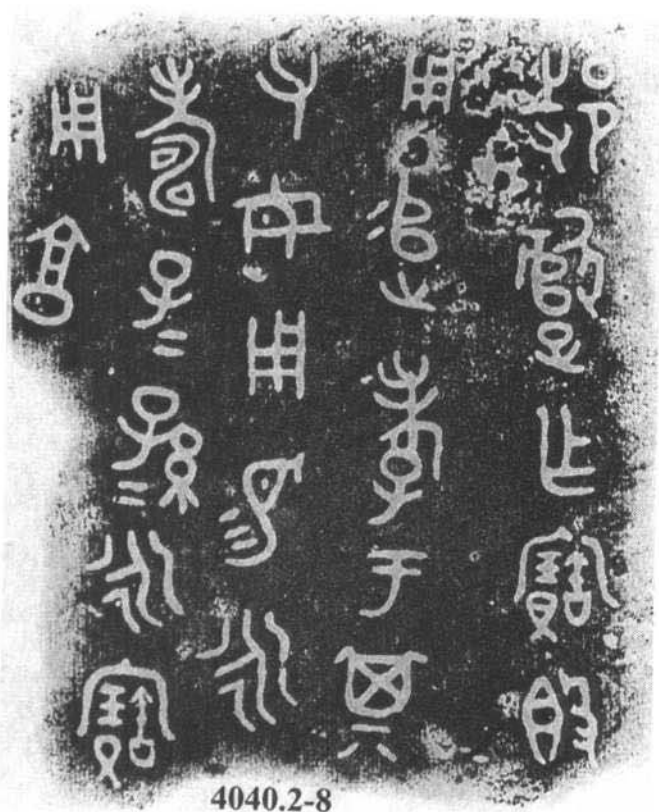 邿譴乍寶𣪘
用追孝于其
父母用易永
壽子=孫=永寶
用享
4040.2-8